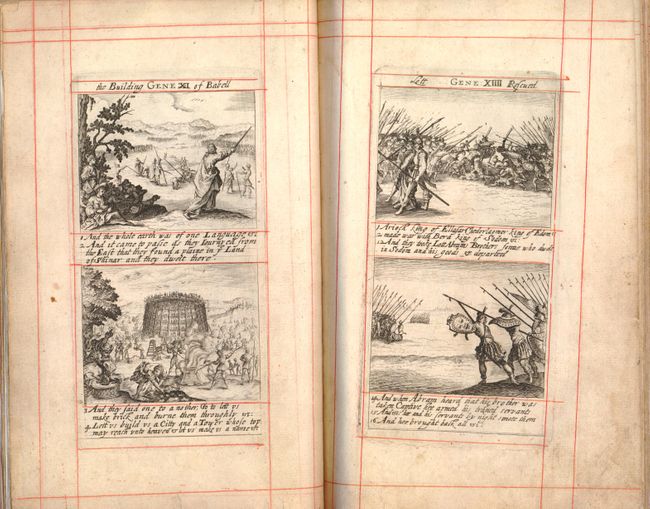 the Building GENE XI of Babell
1 And the whole earth was of one Language &c.
2 And it came to passe as they Iourneyed from
the East that they found a plaine in y Land
of Shinar and they dwelt there
3 And they said one to a nother, Go to lett vs
make brick and burne them throughly &c:
4 Lett vs build vs a Citty and a Tower whose top
may reach vnto heaven & let vs make vs a name &c
Lott GENE XIIII Rescued
1 Arioch king of Ellasar king of Edom
2 made war with Bera king of Sodom &c
12 And they tooke Lott Abrams Brothers sonne who dwelt
in Sodom and his goods & departed
14 And when Abram heard that his brother was
taken Captive hee armed his trained servants
15 And hee and his servants by night smote them
16 And hee brought back all &c.